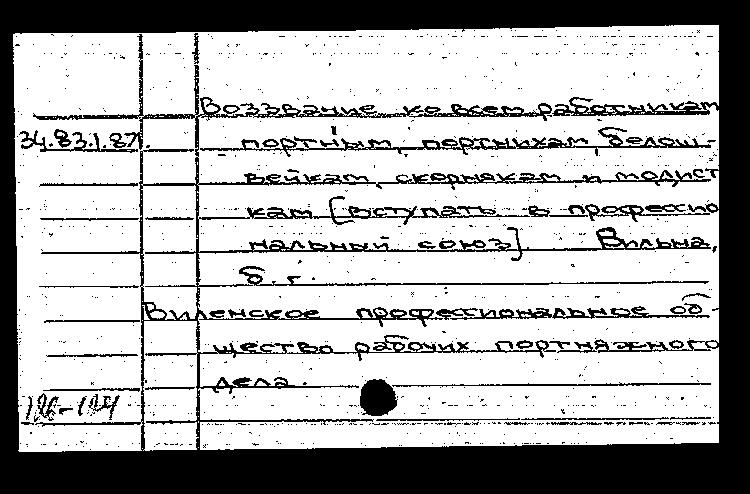 Воззвание ко всем работникам
34.83.1.87. портным, портнихам, белош-
вейкам, скорнякам и модист
кам [вступать в профессио
нальный союз]. Вильна,
б. г.
Виленское профессиональное об-
щество рабочих портняжного
дела.